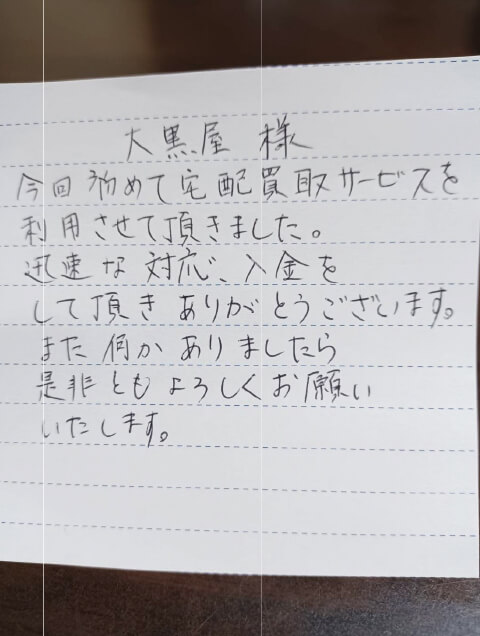 大黒屋 様
今回初めて宅配買取サービスを
利用させて頂きました。
迅速な対応、入金を
して頂きありがとうございます。
また何かありましたら
是非ともよろしくお願い
いたします。